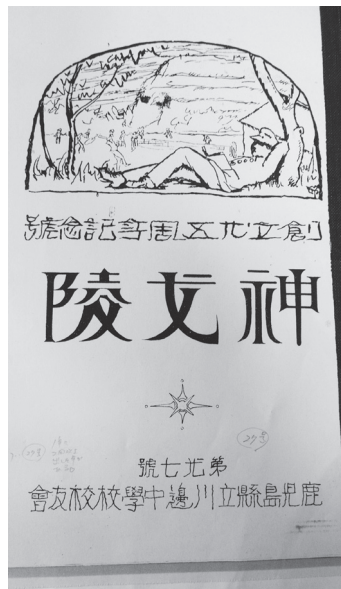 創立廿五周年記念號
神戈陵
第廿七號
鹿児島縣立川邊中學校校友會
27号